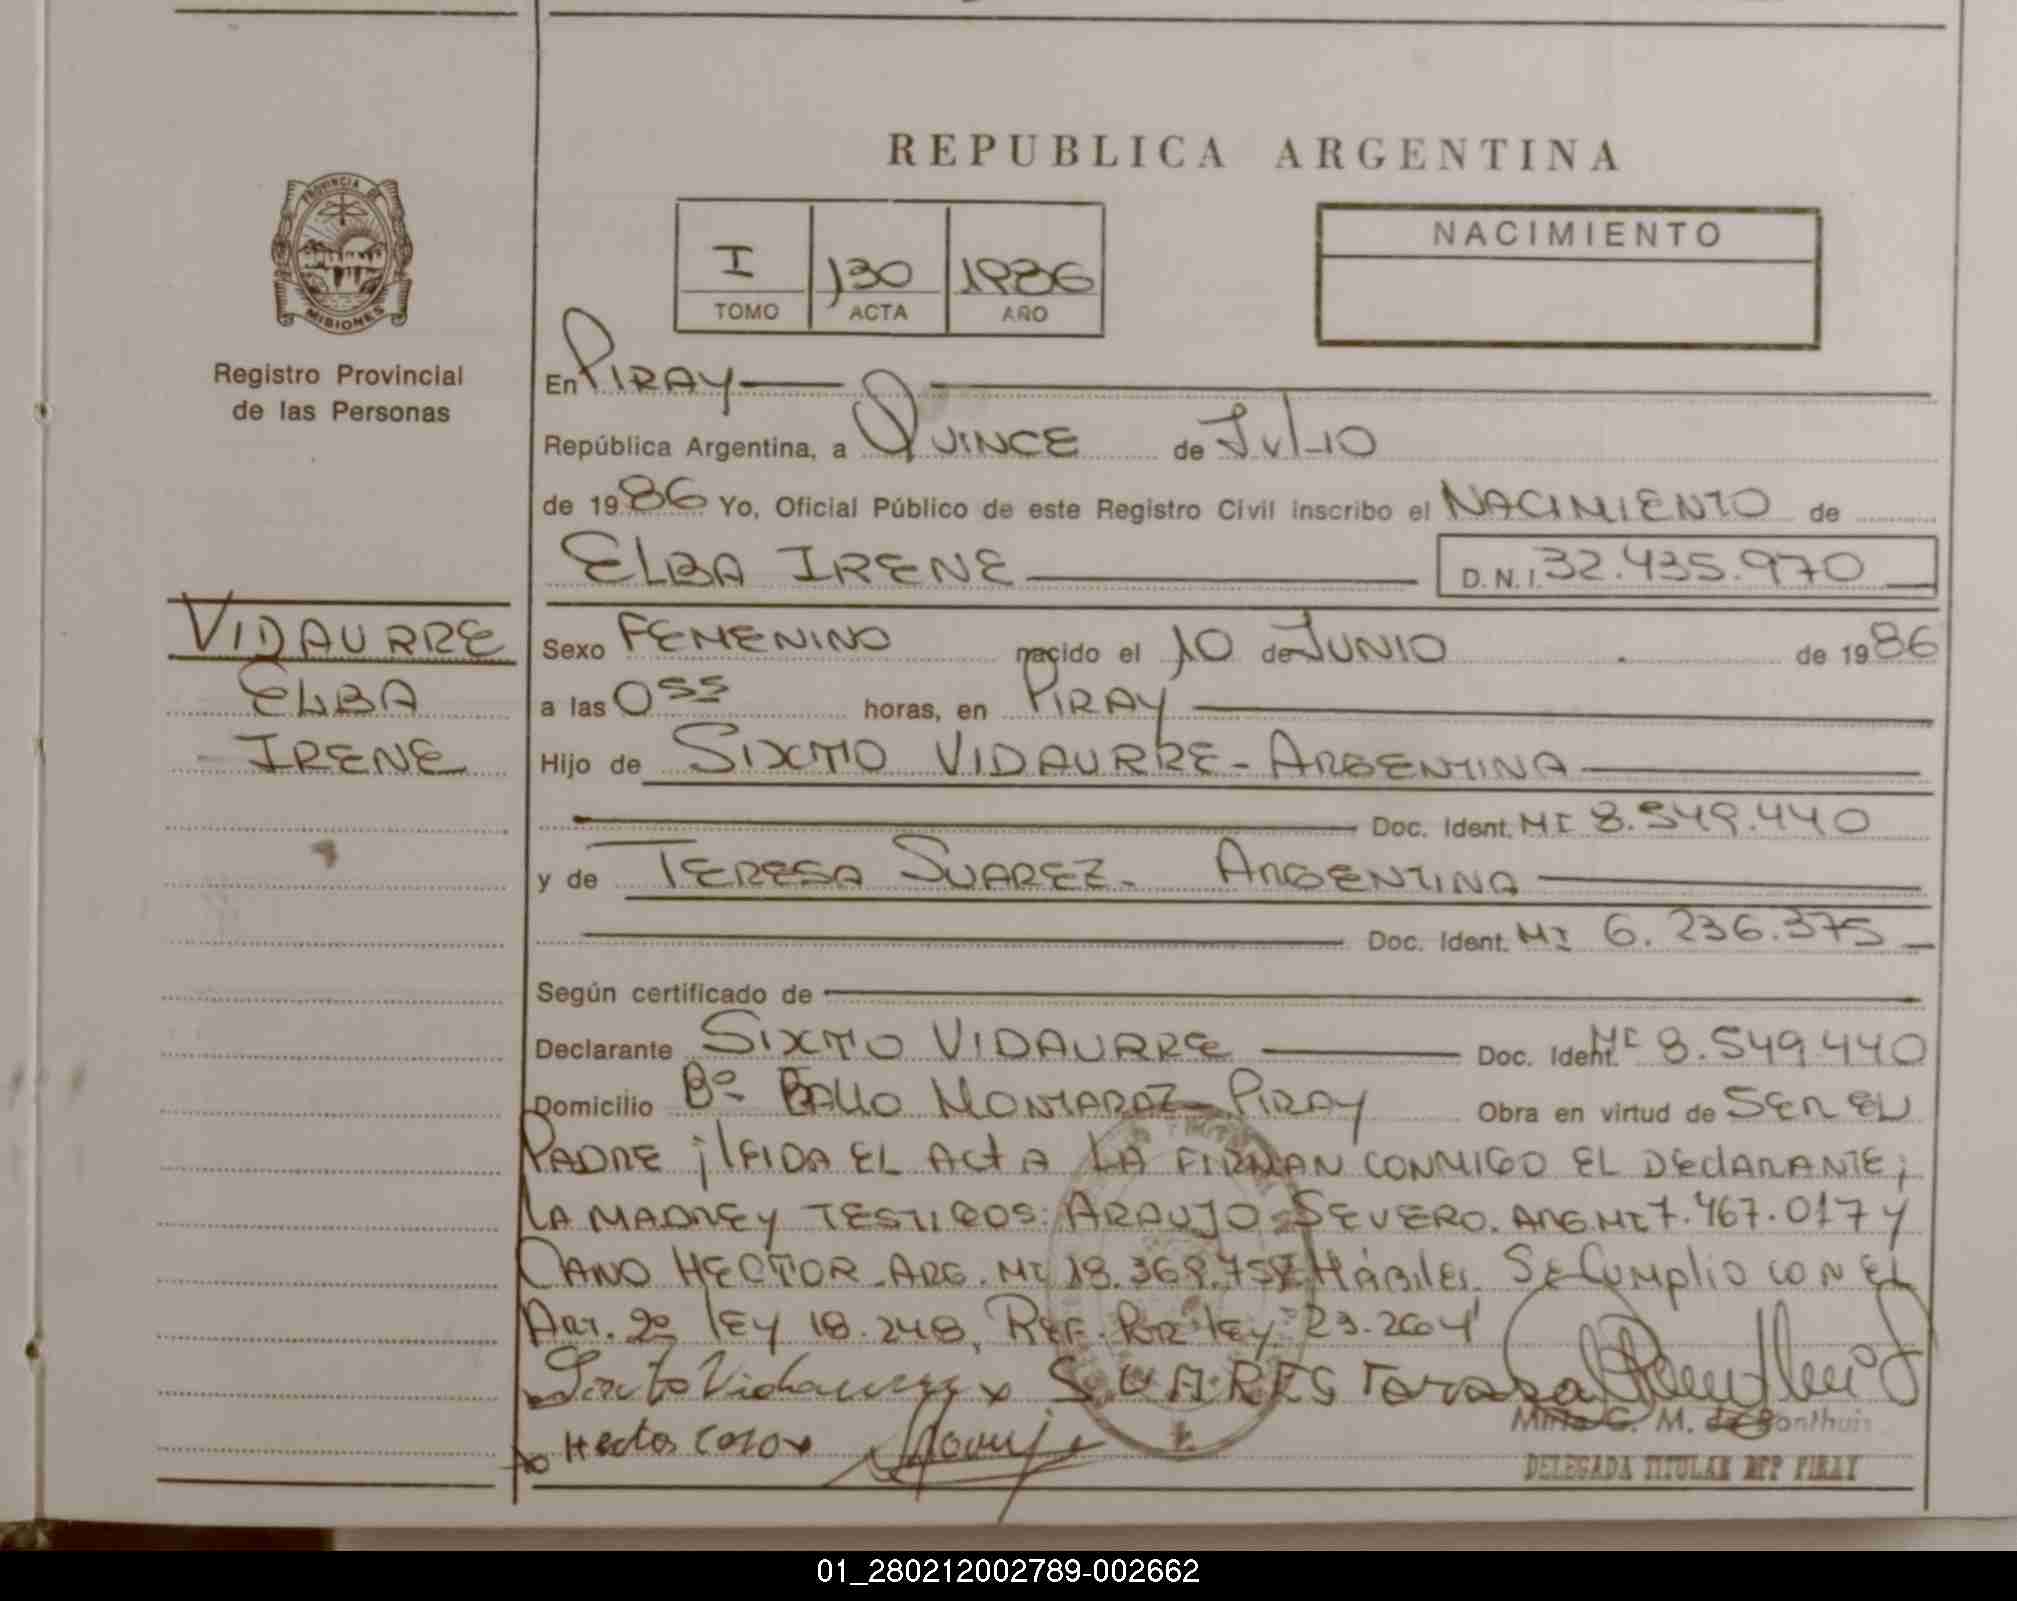 REPUBLICA ARGENTINA
PROVINCIA DE MISIONES
Registro Provincial
de las Personas
I 130 1986
TOMO ACTA AÑO
NACIMIENTO
En PIRAY
República Argentina, a QUINCE de JULIO
de 1986 Yo, Oficial Público de este Registro Civil inscribo el NACIMIENTO de
ELBA IRENE D.N.I. 32.435.970
VIDAURRE
ELBA
IRENE
Sexo FEMENINO nacido el 10 de JUNIO de 1986
a las 0 55 horas, en PIRAY
Hijo de SIXTO VIDAURRE - ARGENTINA
Doc. Ident. MI 8.549.440
y de TERESA SUAREZ - ARGENTINA
Doc. Ident. MI 6.236.375
Según certificado de
Declarante SIXTO VIDAURRE Doc. Ident. MI 8.549.440
Domicilio Bº MONTARAZ - PIRAY Obra en virtud de SER EL
PADRE ; lEIDA EL ActA LA FIRMAN CONMIGO EL DEClARANTE;
LA MADRE y TESTIGOS: ARAUJO SEVERO. ARG. MI 7.467.017 y
CANO HECTOR - ARG. MI Hábiles. Se Cumplio CON EL
Art. 2º lEy 18.248, REF. POR lEy 23.264
Sixto Vidaurre x SUARES Teresa
Hector Cano x
M. de Bonthuis
DELEGADA TITULAR RPP PIRAY
01_280212002789-002662